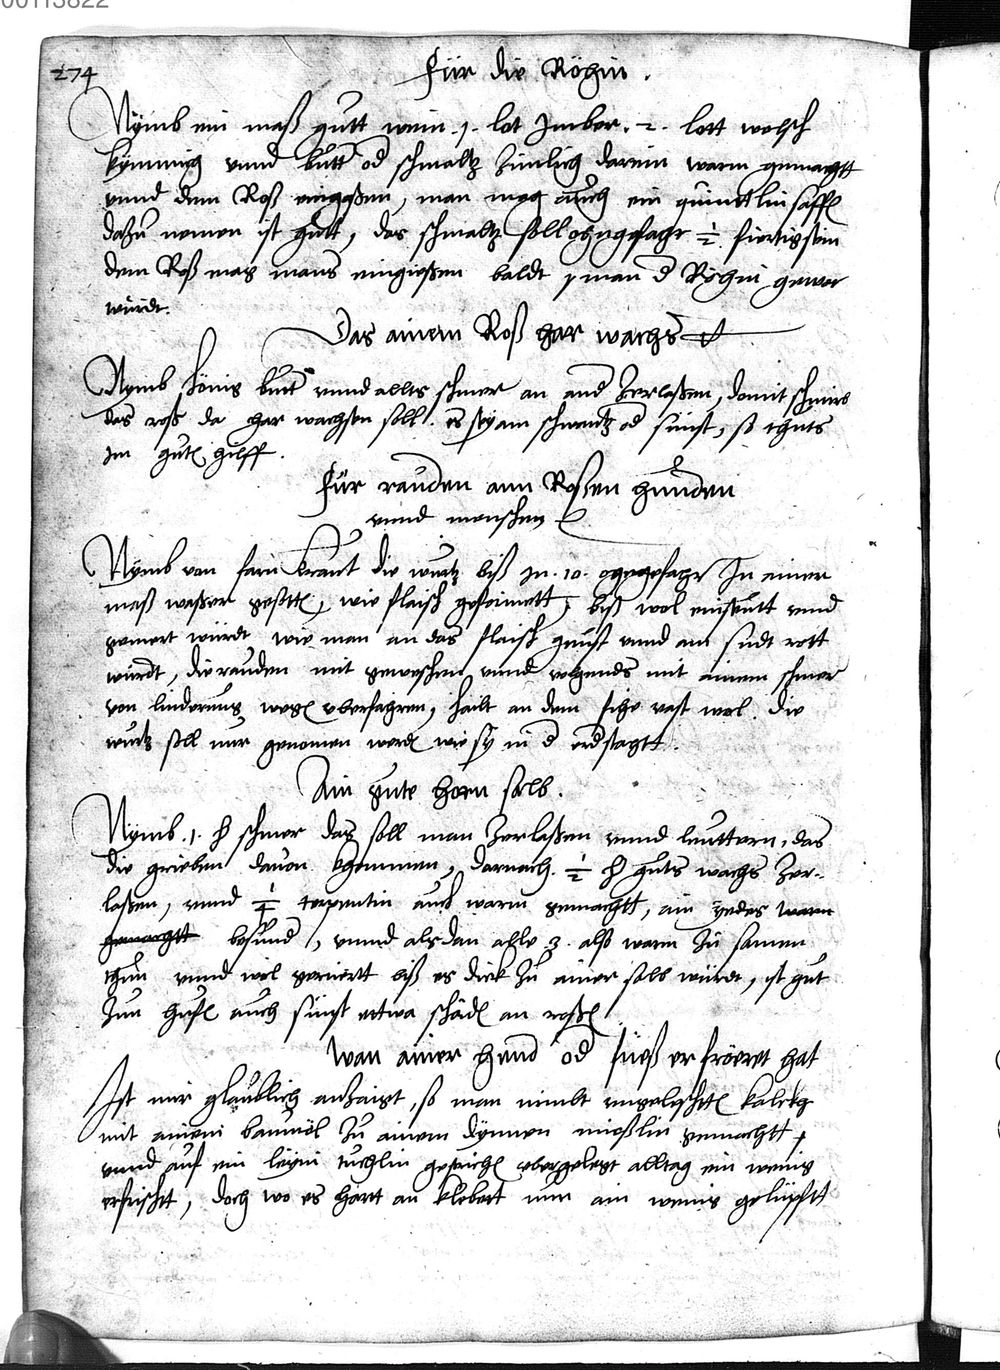 00113822
274
Für die Röhin.
Nÿmb ein maß gutt wein .1. lot Imber .2. lott welsch
kÿmmig vnnd butt od schmaltz zimlich darein warm gemacht
vnnd dem Roß eingoßen, man mag auch ein quinttlin saffr
dazu nemen ist gutt, das schmaltz soll ongefahr ½ fiertig sein
dem Roß mags mans eingießen baldt man d Röhin gewar
würdt.
Das ainem Roß har wachs
Nymb hönig butt vnnd allts schmer an and zerlaßen, domit schmirb
das roß da har wachsen soll. es sey am schwantz od sunst, so thuts
im gute hilff.
Für rauden ann Roßen hunden
vnnd menschen
Nÿmb von farn kraut die wurtz biß in .10. ongefahr In einer
maß waßer, wie flaisch, biß wol einseutt vnnd
würdt wie man an das flaisch vnnd am sudt rott
würdt, die rauden mit geweschen vnnd volgends mit ainem schmer
von linderung weg vberfahren, hailt an dem fihe vast wol. die
wurtz soll nur genomen werd wie sy in d erd stagtt.
Ain gute horn salb.
Nÿmb .1. ℔ schmer das soll man zerlaßen vnnd leuttern, das
die grieben dauon khommen, darnach ½ ℔ guts wachs zer-
laßen, vnnd ¼ terpentin auch warm gemachtt, ain yedes warm
gemachtt besund, vnnd alsdan alle 3. also warm zu samen
thun vnnd wol geriertt biß es dick zu ainer salb würdt, ist gut
zun hufe auch sunst ettwa schäd an roße
Wan ainer hend od füeß erfröeret hat
Ist mir glaublich anzaigt, so man nimbt vngeleschte kalckh
mit ainem baumöl zu ainem dÿnnen mießlin gemachtt,
vnnd auf ein leÿni tuchlin gestrich vbergelegt alltag ein wenig
erfrischt, doch wo es hart an klebett nur ain wenig gelupfft